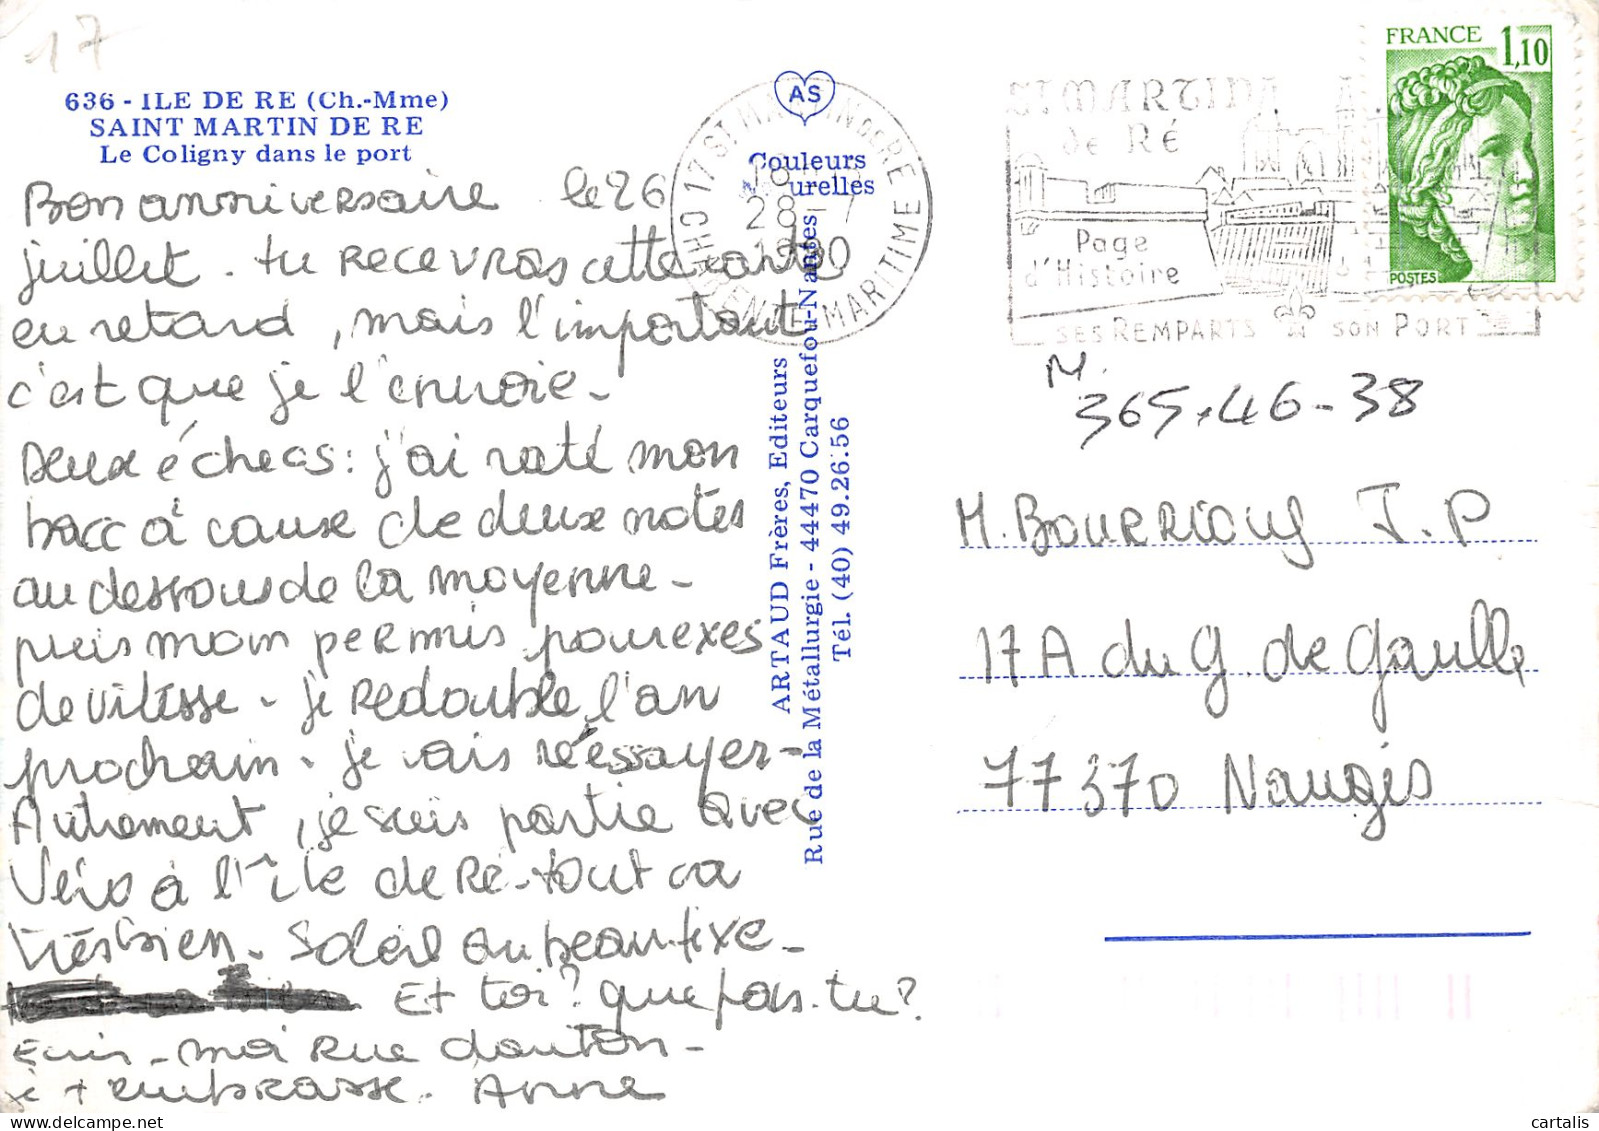 17
636 - ILE DE RE (Ch.-Mme)
SAINT MARTIN DE RE
Le Coligny dans le port
Bon anniversaire le 26
juillet. tu recevras cette carte
en retard, mais l'important
c'est que je l'envoie -
Deux échecs: j'ai raté mon
bacc à cause de deux notes
au dessous de la moyenne -
puis mon permis pour exès
de vitesse - je redouble l'an
prochain. je vais réessayer -
Autrement, je suis partie avec
à l'île de Ré - tout va
très bien. Soleil au beau fixe -
Et toi? que fais-tu?
Ecris-moi Rue danton -
je t'embrasse. Anne
AS
Couleurs
urelles
ARTAUD Frères, Editeurs
Rue de la Métallurgie - 44470 Carquefou-Nantes
Tél. (40) 49.26.56
17 ST MARTIN DE RE
CHARENTE MARITIME
18
28 - 7
1980
ST MARTIN
de RÉ
Page
d'Histoire
SES REMPARTS SON PORT
FRANCE 1,10
POSTES
M.
365.46-38
M. BOURRIOUS J.P
17A du G. de Gaulle
77370 Nangis
cartalis